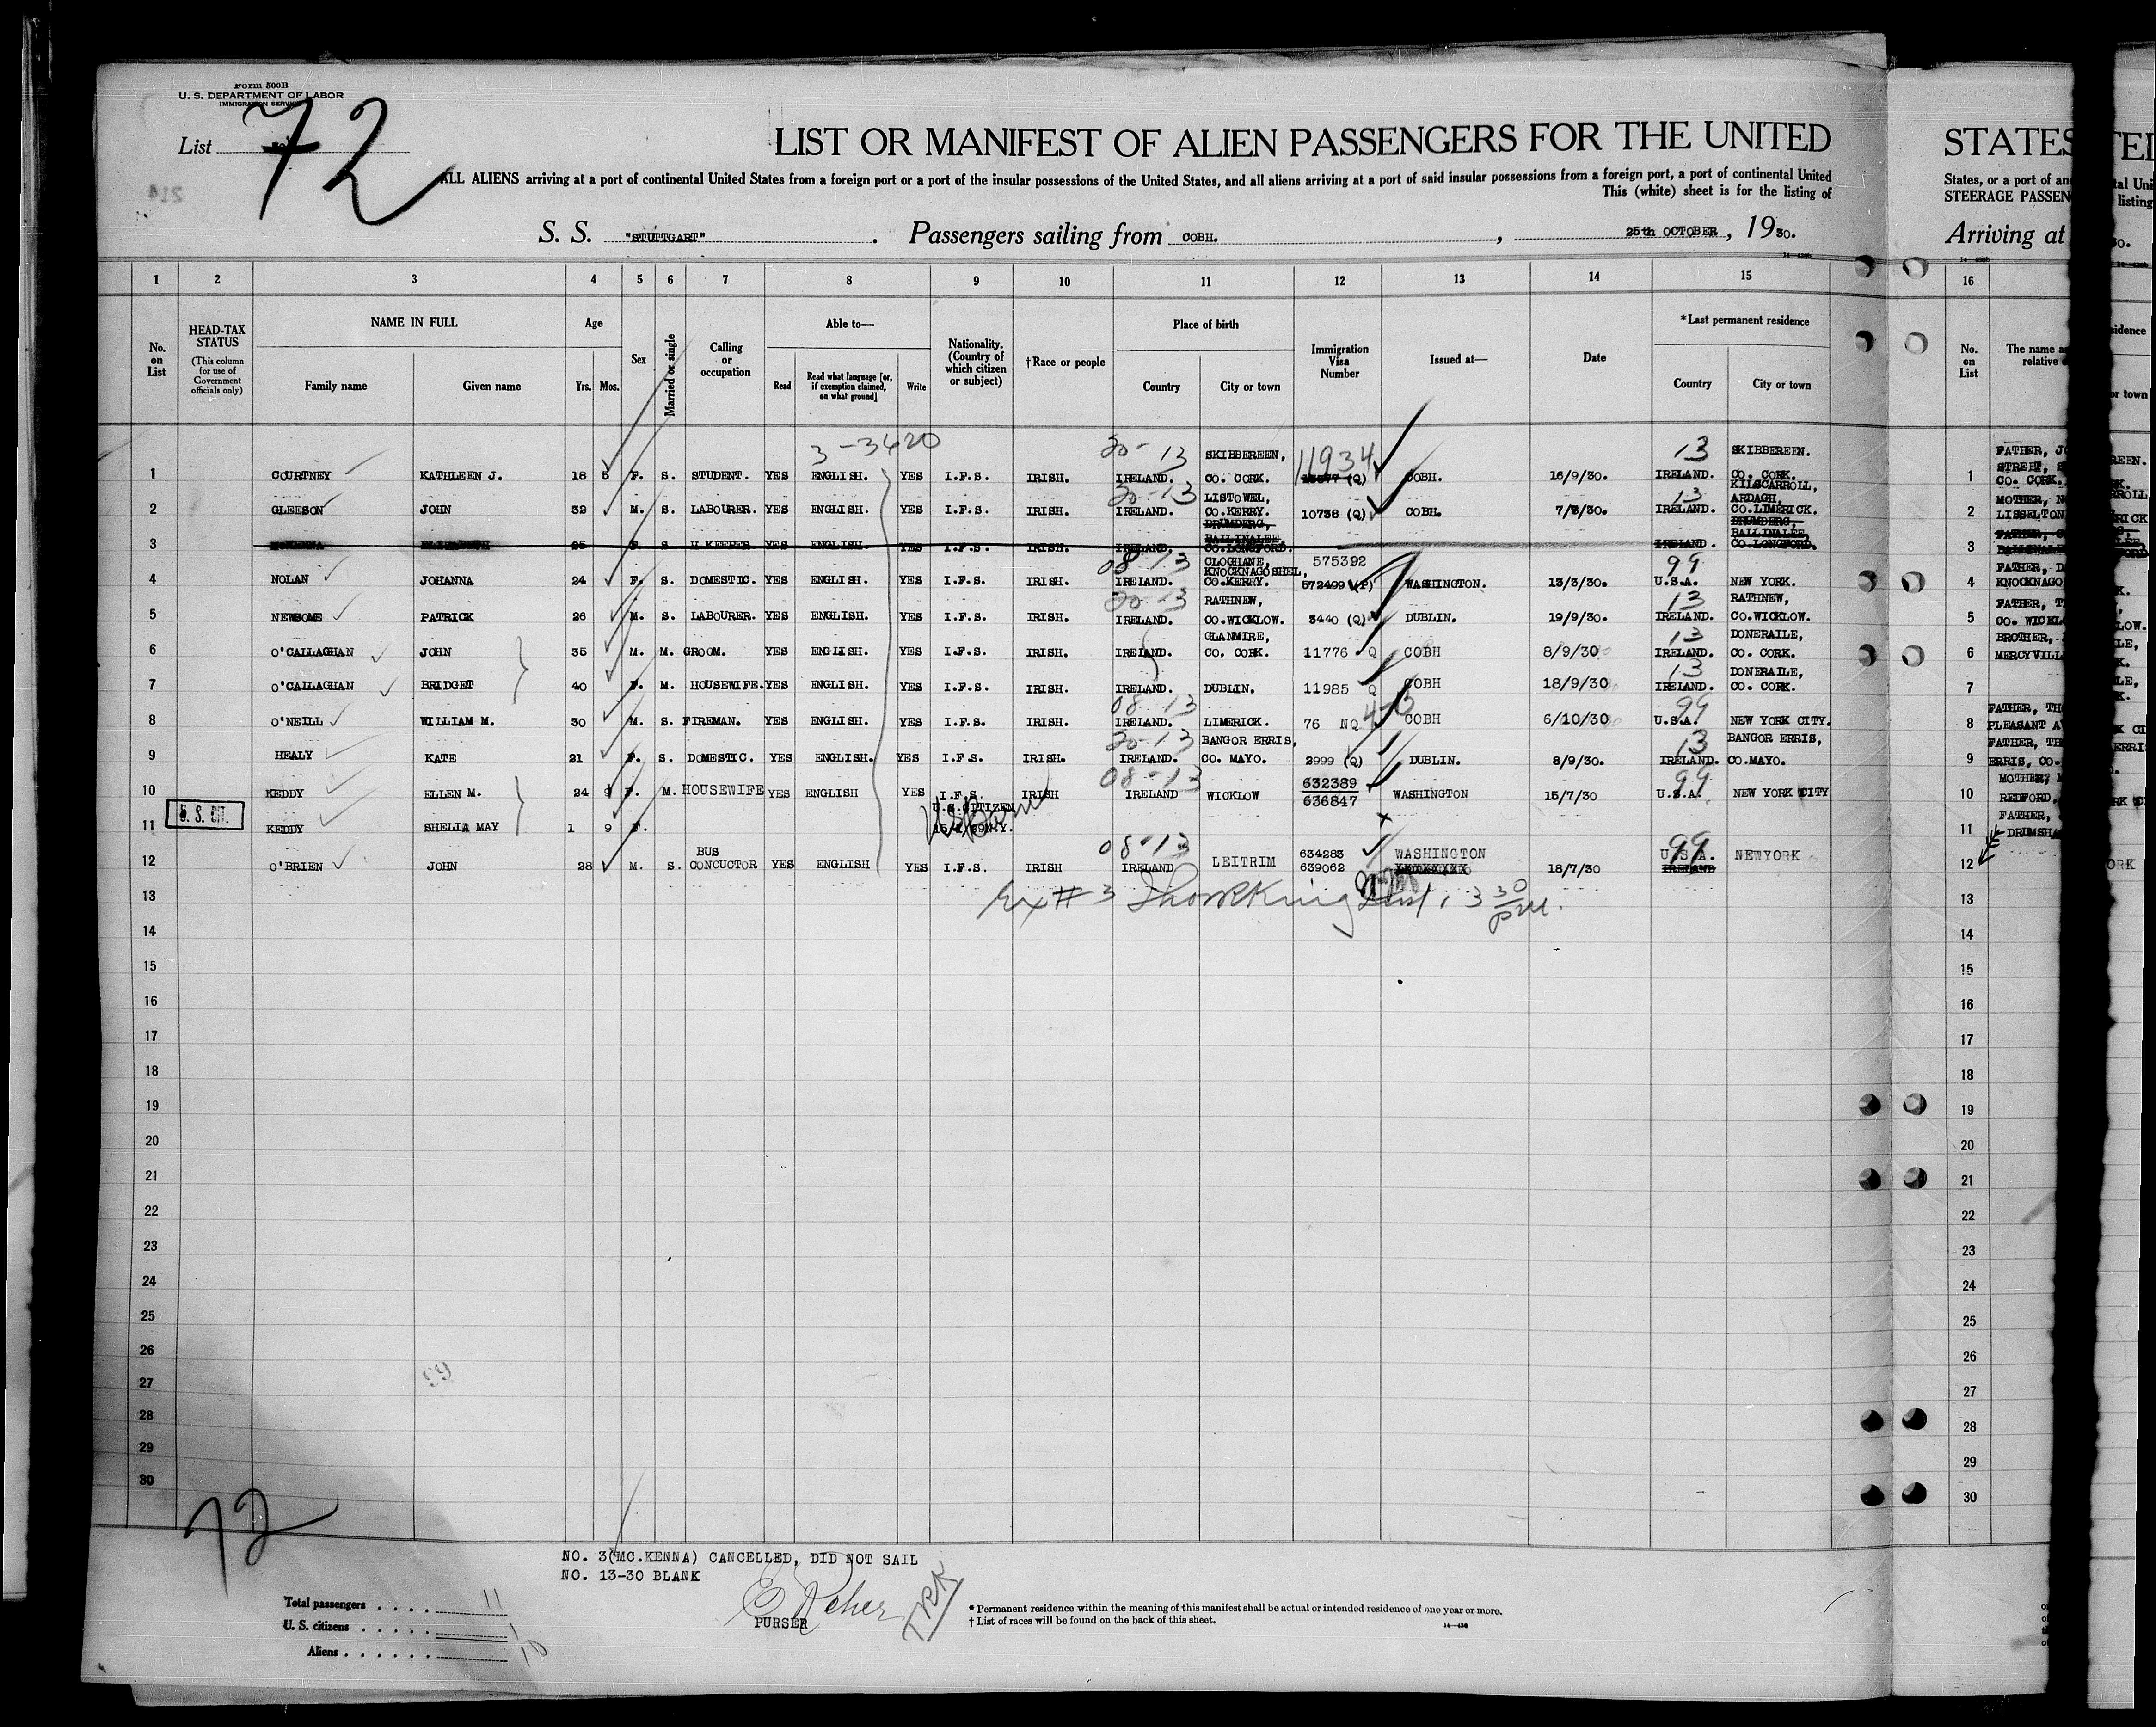 Form 500B
U. S. DEPARTMENT OF LABOR
IMMIGRATION SERVICE
List 72
LIST OR MANIFEST OF ALIEN PASSENGERS FOR THE UNITED
ALL ALIENS arriving at a port of continental United States from a foreign port or a port of the insular possessions of the United States, and all aliens arriving at a port of said insular possessions from a foreign port, a port of continental United
This (white) sheet is for the listing of
S. S. "STUTTGART" . Passengers sailing from COBH. , 25th OCTOBER , 1930.
STATES
States, or a port of
STEERAGE
Arriving at
1 2 3 4 5 6 7 8 9 10 11 12 13 14 15 16
No. on List
HEAD-TAX STATUS
(This column for use of Government officials only)
NAME IN FULL
Family name Given name
Age
Yrs. Mos.
Sex
Married or single
Calling or occupation
Able to—
Read Read what language [or, if exemption claimed, on what ground] Write
Nationality. (Country of which citizen or subject)
†Race or people
Place of birth
Country City or town
Immigration Visa Number
Issued at—
Date
*Last permanent residence
Country City or town
No. on List
The name
relative
3-3420
1 COURTNEY KATHLEEN J. 18 5 F. S. STUDENT. YES ENGLISH. YES I.F.S. IRISH. 20-13 IRELAND. SKIBBEREEN, CO. CORK. 11934 (Q) COBH. 16/9/30. 13 IRELAND. SKIBBEREEN. CO. CORK.
2 GLEESON JOHN 32 M. S. LABOURER. YES ENGLISH. YES I.F.S. IRISH. 20-13 IRELAND. LISTOWEL, CO.KERRY. 10738 (Q) COBH. 7/8/30. 13 IRELAND. KILSCARROLL, ARDAGH, CO.LIMERICK.
3 McKENNA ELIZABETH 25 F. S. H.KEEPER YES ENGLISH. YES I.F.S. IRISH. IRELAND. DRUMDERG, BALLINALEE, CO.LONGFORD. IRELAND. DRUMDERG, BALLINALEE, CO.LONGFORD.
4 NOLAN JOHANNA 24 F. S. DOMESTIC. YES ENGLISH. YES I.F.S. IRISH. 08-13 IRELAND. CLOGHANE, KNOCKNAGOSHEL, CO.KERRY. 575392 572499 (P) WASHINGTON. 13/3/30. 99 U.S.A. NEW YORK.
5 NEWSOME PATRICK 26 M. S. LABOURER. YES ENGLISH. YES I.F.S. IRISH. 20-13 IRELAND. RATHNEW, CO.WICKLOW. 3440 (Q) DUBLIN. 19/9/30. 13 IRELAND. RATHNEW, CO.WICKLOW.
6 O'CALLAGHAN JOHN 35 M. M. GROOM. YES ENGLISH. YES I.F.S. IRISH. IRELAND. GLANMIRE, CO. CORK. 11776 Q COBH 8/9/30 13 IRELAND. DONERAILE, CO. CORK.
7 O'CALLAGHAN BRIDGET 40 F. M. HOUSEWIFE. YES ENGLISH. YES I.F.S. IRISH. IRELAND. DUBLIN. 11985 Q COBH 18/9/30 13 IRELAND. DONERAILE, CO. CORK.
8 O'NEILL WILLIAM M. 30 M. S. FIREMAN. YES ENGLISH. YES I.F.S. IRISH. 08-13 IRELAND. LIMERICK. 76 NQ COBH 6/10/30 99 U.S.A. NEW YORK CITY.
9 HEALY KATE 21 F. S. DOMESTIC. YES ENGLISH. YES I.F.S. IRISH. 20-13 IRELAND. BANGOR ERRIS, CO. MAYO. 2999 (Q) DUBLIN. 8/9/30. 13 IRELAND. BANGOR ERRIS, CO.MAYO.
10 KEDDY ELLEN M. 24 9 F. M. HOUSEWIFE YES ENGLISH YES I.F.S. IRISH 08-13 IRELAND WICKLOW 632389 636847 WASHINGTON 15/7/30 99 U.S.A. NEW YORK CITY
11 U.S. CIT. KEDDY SHELIA MAY 1 9 F. U.S.CITIZEN US Born
12 O'BRIEN JOHN 28 M. S. BUS CONCUCTOR YES ENGLISH YES I.F.S. IRISH 08-13 IRELAND LEITRIM 634283 639062 WASHINGTON 18/7/30 99 U.S.A. IRELAND NEWYORK
13
14
15
16
17
18
19
20
21
22
23
24
25
26
27
28
29
30
1 FATHER,
STREET,
CO. CORK.
2 MOTHER,
LISSELTON
3 FATHER,
4 FATHER,
5 FATHER,
6 BROTHER,
7
8 FATHER,
PLEASANT
9 FATHER,
ERRIS, CO.
10 MOTHER,
REDFORD,
11 FATHER,
12
13
14
15
16
17
18
19
20
21
22
23
24
25
26
27
28
29
30
72
NO. 3(MC.KENNA) CANCELLED, DID NOT SAIL
NO. 13-30 BLANK
PURSER
Total passengers . . . . 11
U. S. citizens . . . . . 1
Aliens . . . . . . 10
* Permanent residence within the meaning of this manifest shall be actual or intended residence of one year or more.
† List of races will be found on the back of this sheet.